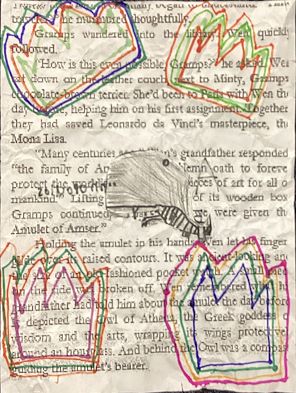 he murmured thoughtfully.
Gramps wandered into the library. Wen quickly
followed.
"How is this even possible, Gramps?" he asked. Wen
sat down on the leather couch next to Minty, Gramps
chocolate-brown terrier. She'd been to Paris with Wen the
day helping him on his first assignment. Together
they had saved Leonardo da Vinci's masterpiece, the
Mona Lisa.
"Many centuries Wen's grandfather responded
"the family of solemn oath to forever
protect the pieces of art for all of
mankind. Lifting of its wooden box
Gramps continued, we were given the
Amulet of Amser."
Holding the amulet in his hand, Wen let his finger
over its raised contours. It was ancient-looking and
old-fashioned pocket
on the side was broken off. Wen remembered
grandfather had told him about the amulet the day before
depicted the Owl of Athena, the Greek goddess of
wisdom and the arts, wrapping its wings protectively
around an hourglass. And behind the Owl was a compass
guiding the amulet's bearer.